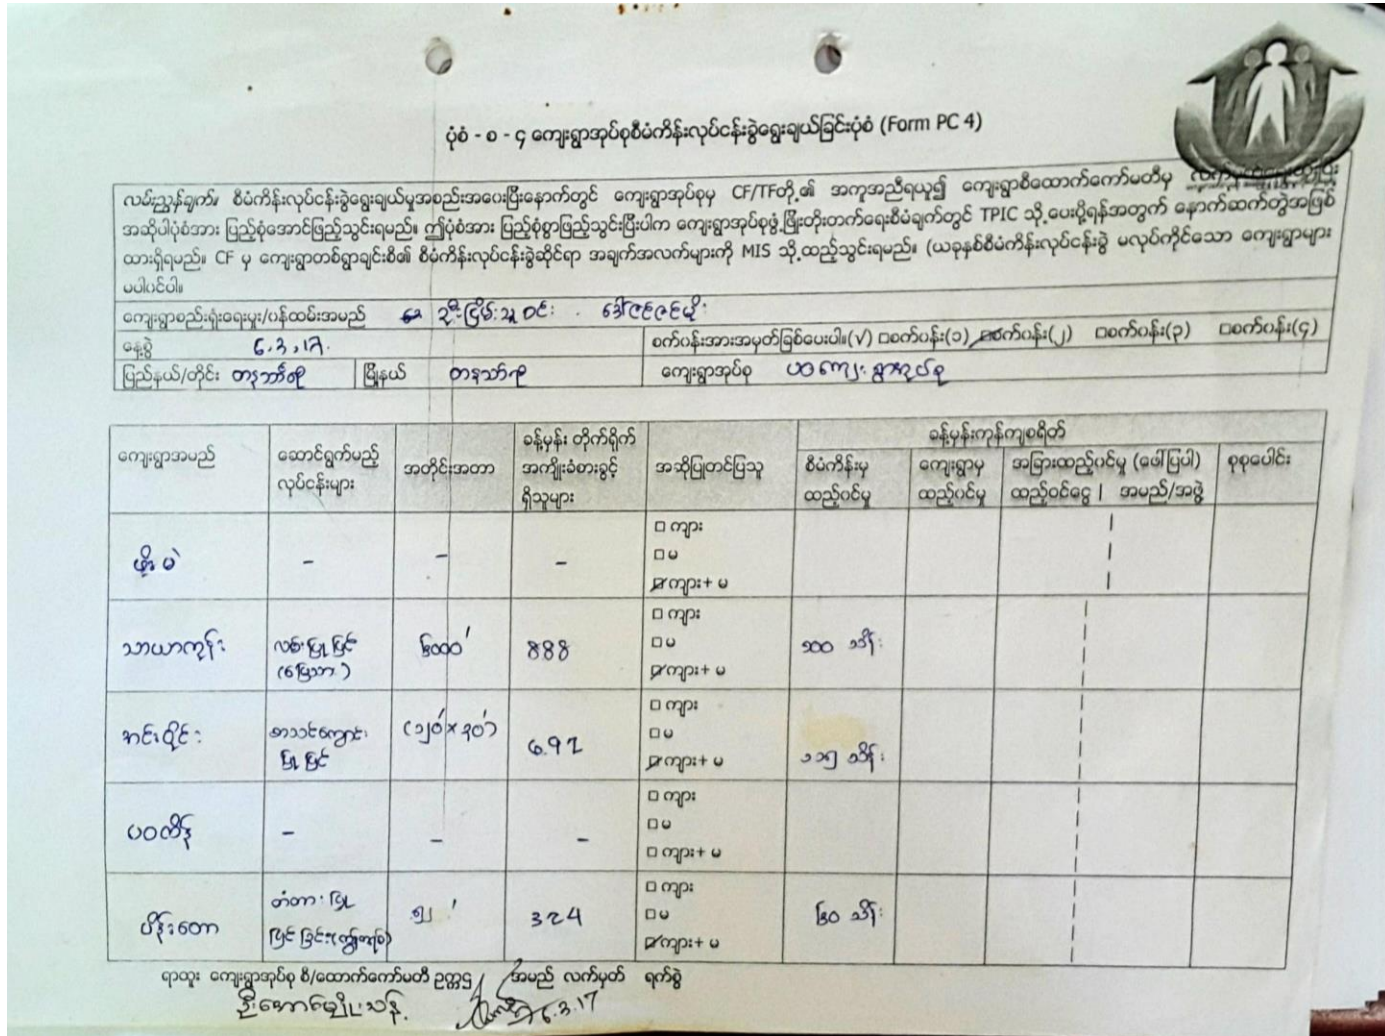 ပုံစံ - စ - ၄ ကျေးရွာအုပ်စုစီမံကိန်းလုပ်ငန်းခွဲရွေးချယ်ခြင်းပုံစံ (Form PC 4)
လမ်းညွှန်ချက်။ စီမံကိန်းလုပ်ငန်းခွဲရွေးချယ်မှုအစည်းအဝေးပြီးနောက်တွင် ကျေးရွာအုပ်စုမှ CF/TFတို့၏ အကူအညီရယူ၍ ကျေးရွာစီထောက်ကော်မတီမှ
အဆိုပါပုံစံအား ပြည့်စုံအောင်ဖြည့်သွင်းရမည်။ ဤပုံစံအား ပြည့်စုံစွာဖြည့်သွင်းပြီးပါက ကျေးရွာအုပ်စုဖွံ့ဖြိုးတိုးတက်ရေးစီမံချက်တွင် TPIC သို့ပေးပို့ရန်အတွက် နောက်ဆက်တွဲအဖြစ်
ထားရှိရမည်။ CF မှ ကျေးရွာတစ်ရွာချင်းစီ၏ စီမံကိန်းလုပ်ငန်းခွဲဆိုင်ရာ အချက်အလက်များကို MIS သို့ထည့်သွင်းရမည်။ (ယခုနှစ်စီမံကိန်းလုပ်ငန်းခွဲ မလုပ်ကိုင်သော ကျေးရွာများ
မပါဝင်ပါ။
ကျေးရွာစည်းရုံးရေးမှူး/ဝန်ထမ်းအမည် ဦးငြိမ်းသူဝင်း . ဒေါ်ဇင်ဇင်မိုး
နေ့စွဲ 6.3.17. စက်ဝန်းအားအမှတ်ခြစ်ပေးပါ။(√) □စက်ဝန်း(၁) ☑စက်ဝန်း(၂) □စက်ဝန်း(၃) □စက်ဝန်း(၄)
ပြည်နယ်/တိုင်း တနင်္သာရီ မြို့နယ် တနင်္သာရီ ကျေးရွာအုပ်စု ပဝကျေးရွာအုပ်စု
ခန့်မှန်းကုန်ကျစရိတ်
ကျေးရွာအမည် ဆောင်ရွက်မည့် လုပ်ငန်းများ အတိုင်းအတာ ခန့်မှန်း တိုက်ရိုက် အကျိုးခံစားခွင့် ရှိသူများ အဆိုပြုတင်ပြသူ စီမံကိန်းမှ ထည့်ဝင်မှု ကျေးရွာမှ ထည့်ဝင်မှု အခြားထည့်ဝင်မှု (ဖော်ပြပါ) ထည့်ဝင်ငွေ | အမည်/အဖွဲ့ စုစုပေါင်း
□ ကျား
- - - □ မ
☑ ကျား + မ
□ ကျား
သာယာကုန်း လမ်းပြုပြင် ၆၀၀၀' 888 □ မ ၁၀၀ သိန်း
(မြေသား) ☑ ကျား + မ
□ ကျား
စာသင်ကျောင်း (၁၂၀'×၃၀') 692 □ မ
ပြုပြင် ☑ ကျား + မ ၁၁၅ သိန်း
□ ကျား
ပဝကိန် - - - □ မ
□ ကျား + မ
တံတားပြု □ ကျား
ပိန်းတော ပြင်ခြင်း ၅၂' 324 □ မ ၆၀ သိန်း
☑ ကျား + မ
ရာထူး ကျေးရွာအုပ်စု စီ/ထောက်ကော်မတီ ဥက္ကဌ အမည် လက်မှတ် ရက်စွဲ
ဦးအောင်မျိုးသန့် 6.3.17